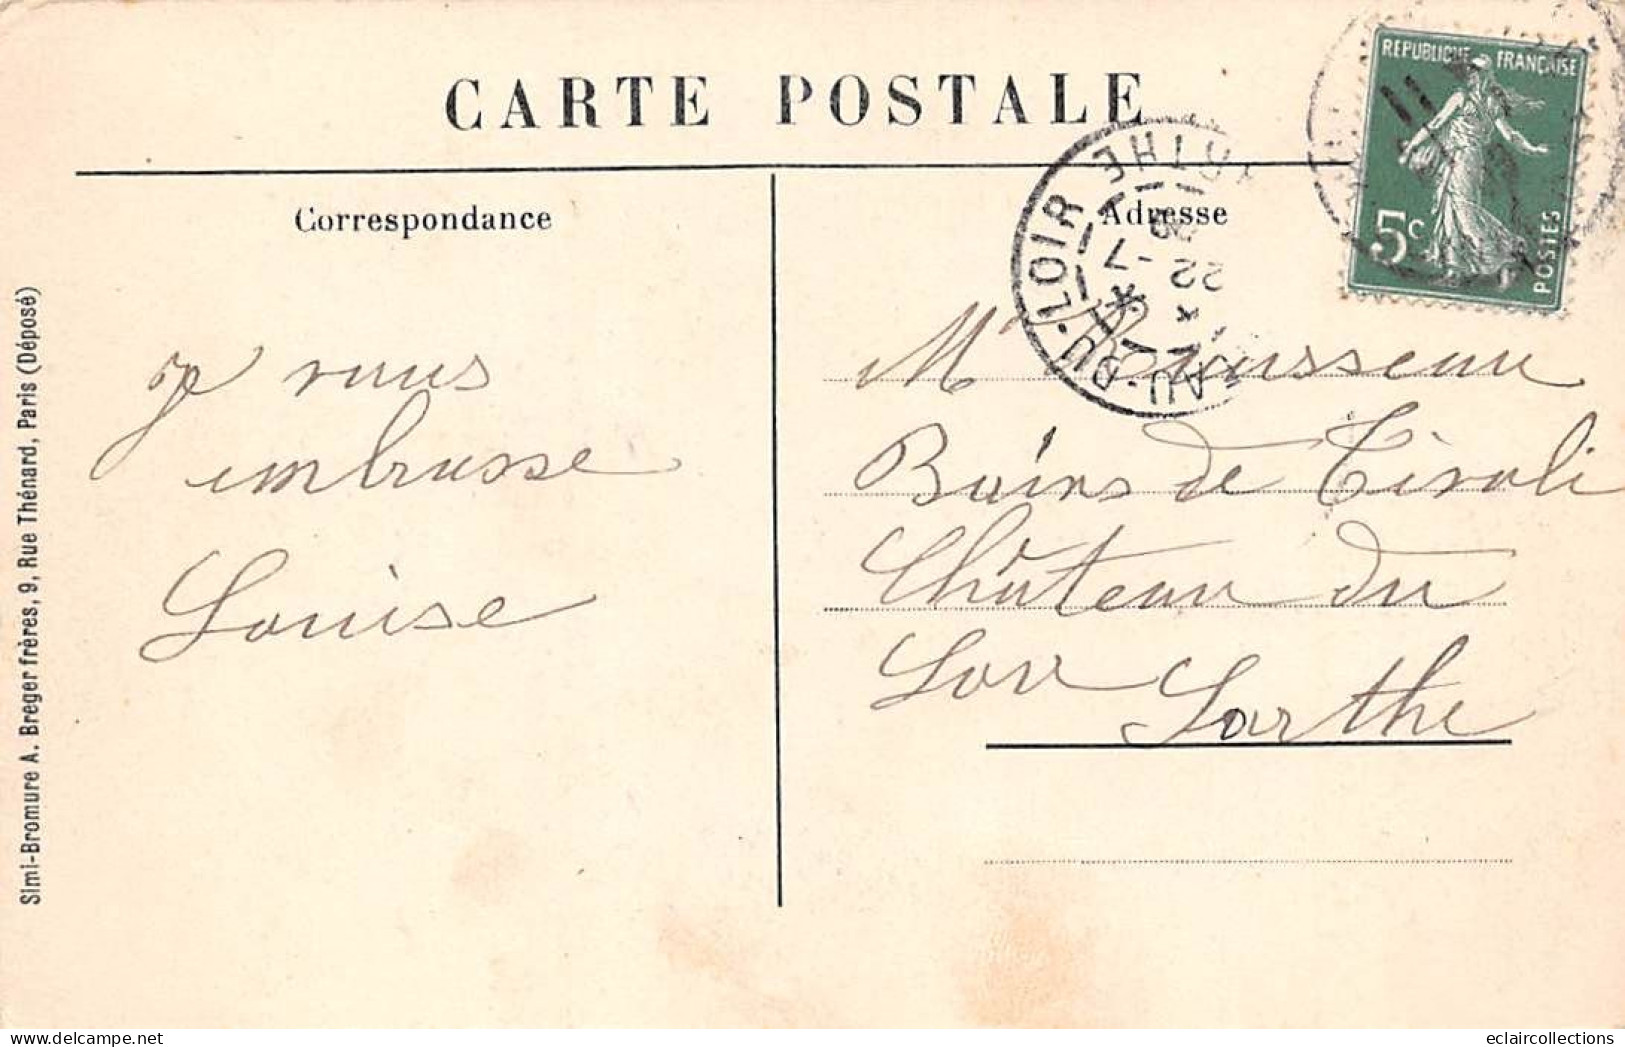 CARTE POSTALE
RÉPUBLIQUE FRANÇAISE
5c
POSTES
Correspondance
Adresse
AU-DU-LOIR
22 -7
je vous
embrasse
Louise
Mr Rousseau
Bains de Tivoli
Château du
Loir Sarthe
Simi-Bromure A. Breger frères, 9, Rue Thénard, Paris (Déposé)
eclaircollections